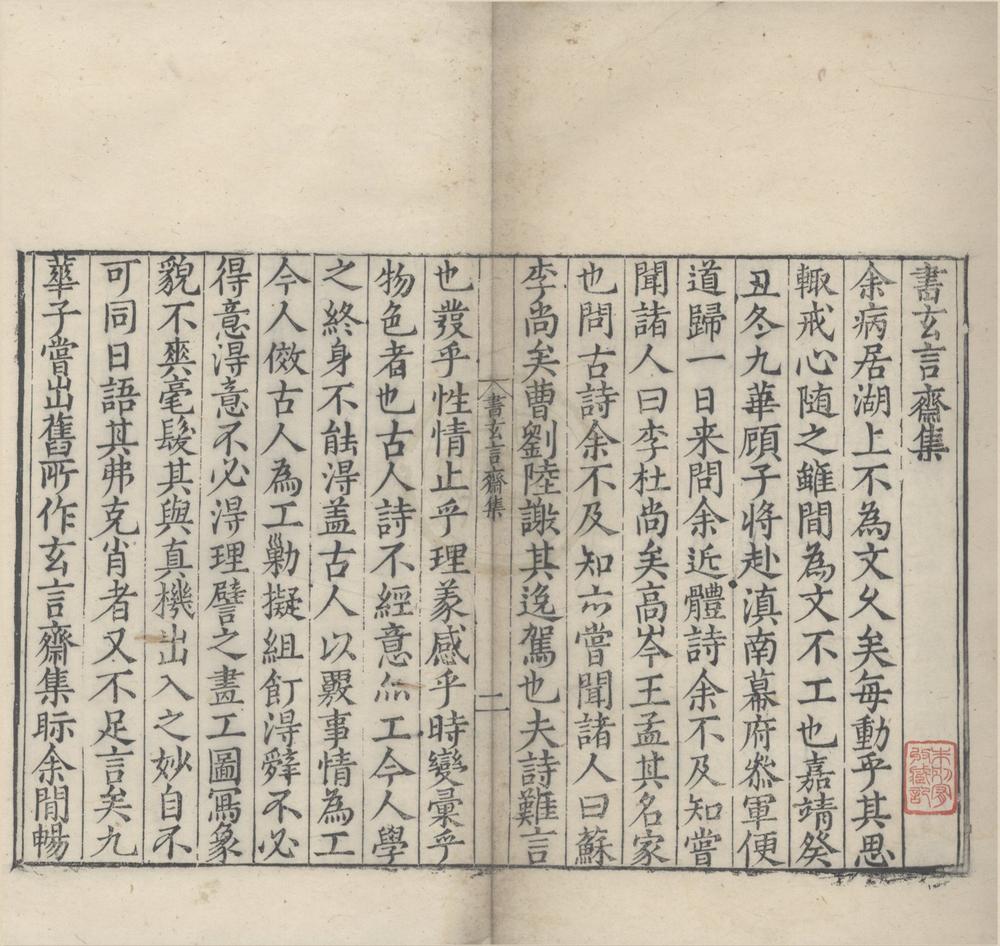 書玄言齋集
余病居湖上不為文乆矣每動乎其思
輙戒心随之雖間為文不工也嘉靖癸
丑冬九華顧子將赴滇南幕府叅軍便
道歸一日来問余近體詩余不及知嘗
聞諸人曰李杜尚矣高岑王孟其名家
也問古詩余不及知亦嘗聞諸人曰蘇
李尚矣曹劉陸謝其逸駕也夫詩難言
書玄言齋集
二
也發乎性情止乎理義感乎時變彚乎
物色者也古人詩不經意而工今人學
之終身不能得盖古人以覈事情為工
今人倣古人為工勦擬組飣得辤不必
得意得意不必得理譬之畫工圖寫象
貌不爽毫髮其與真機出入之妙自不
可同日語其弗克肖者又不足言矣九
華子嘗出舊所作玄言齋集眎余閒暢